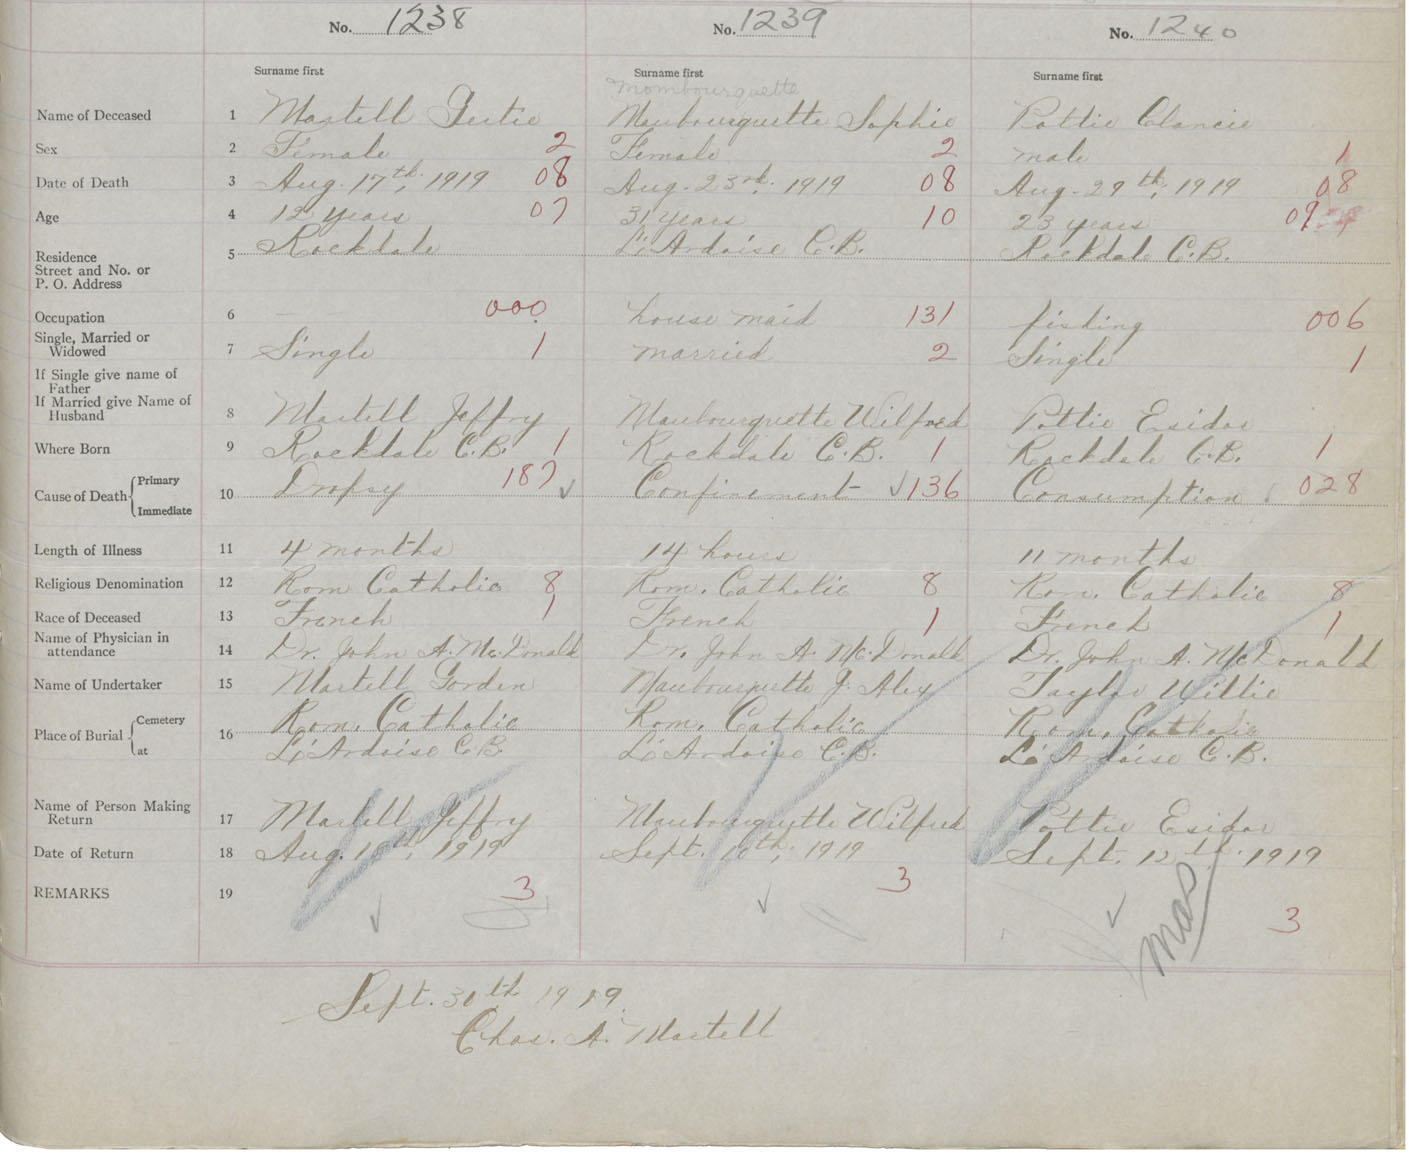 No. 1238 No. 1239 No. 1240
Surname first Surname first Surname first
Mombourquette
Name of Deceased 1 Martell Gertie Maubourquette Sophie Pottie Clancie
Sex 2 Female 2 Female 2 male 1
Date of Death 3 Aug. 17th, 1919 08 Aug. 23rd. 1919 08 Aug. 29th, 1919 08
Age 4 12 years 07 31 years 10 23 years 09
Residence
Street and No. or
P. O. Address
5 Rockdale L'Ardoise C.B. Rockdale C.B.
Occupation 6 — 000 house maid 131 fishing 006
Single, Married or
Widowed
7 Single 1 married 2 Single 1
If Single give name of
Father
If Married give Name of
Husband
8 Martell Jeffry Maubourquette Wilfred Pottie Esidor
Where Born 9 Rockdale C.B. 1 Rockdale C.B. 1 Rockdale C.B. 1
Cause of Death { Primary
Immediate
10 Dropsy 187 Confinement 136 Consumption 028
Length of Illness 11 4 months 14 hours 11 months
Religious Denomination 12 Rom Catholic 8 Rom. Catholic 8 Rom. Catholic 8
Race of Deceased 13 French 1 French 1 French 1
Name of Physician in
attendance
14 Dr. John A. McDonald Dr. John A. McDonald Dr. John A. McDonald
Name of Undertaker 15 Martell Gorden Maubourquette J. Alex Taylor Willie
Place of Burial { Cemetery
at
16 Rom. Catholic Rom. Catholic Rom. Catholic
L'Ardoise C.B. L'Ardoise C.B. L'Ardoise C.B.
Name of Person Making
Return
17 Martell, Jeffry Maubourquette Wilfred Pottie Esidor
Date of Return 18 Aug. 19th, 1919 Sept. 10th, 1919 Sept. 12th. 1919
REMARKS 19 3 3 3
mas
Sept. 30th 1919.
Chas. A. Martell